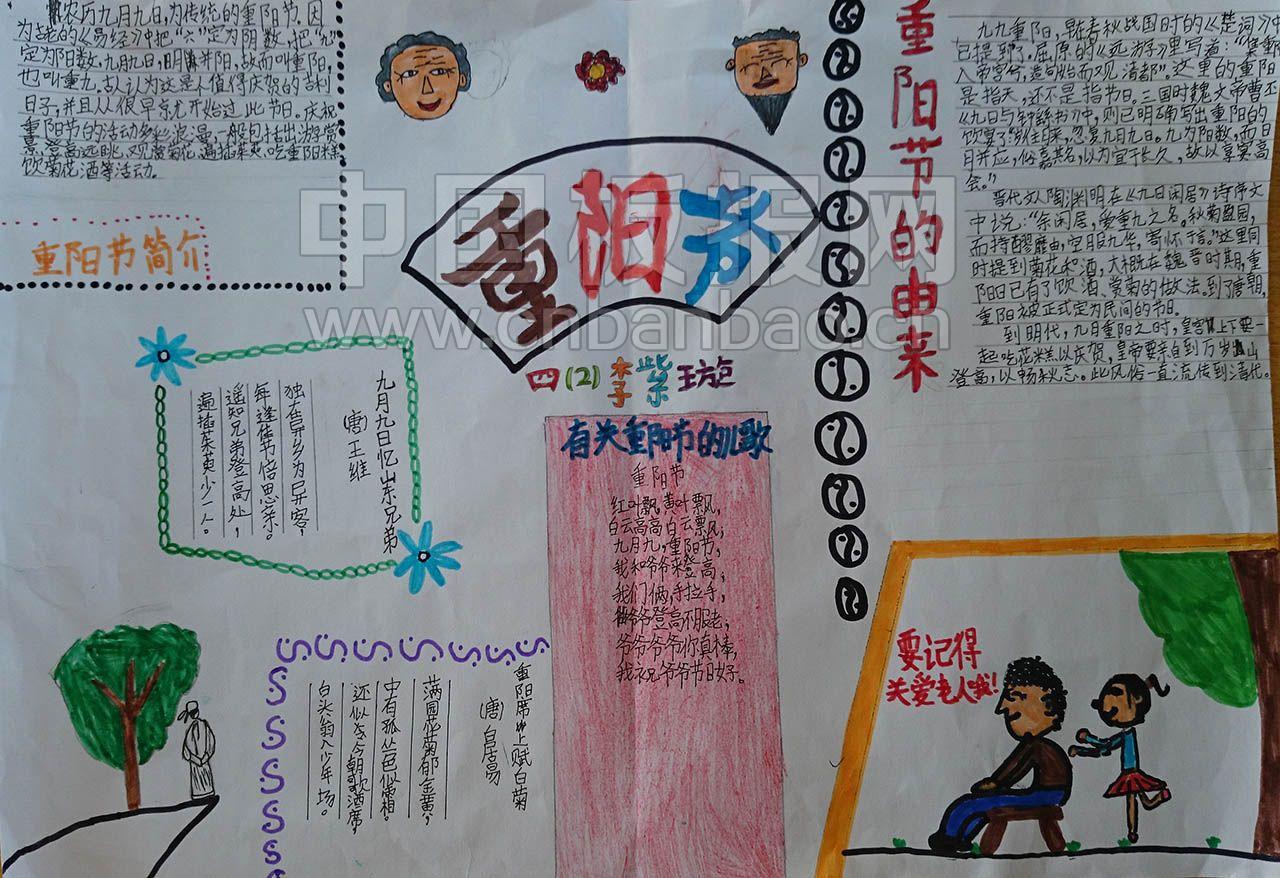 农历九月九日,为传统的重阳节。因
为古老的《易经》中把“六”定为阴数,把“九”
定为阳数,九月九日,
也叫重九,古人认为这是个值得庆贺的吉利
日子,并且从很早就开始过此节日。庆祝
重阳节的活动多彩浪漫,一般包括出游赏
景、登高远眺、观赏菊花、遍插茱萸、吃重阳糕、
饮菊花酒等活动。
重阳节简介
重阳节
四(2) 李紫
重阳节的由来
九九重阳,
已提到了。屈原的《远游》里写着:“集重阳
入帝宫兮,造旬始而观清都”。这里的重阳
是指天,还不是指节日。三国时魏文帝曹丕
《九日与钟繇书》中,则已明确写出重阳的
饮宴了:“岁往月来,忽复九月九日。九为阳数,而日
月并应,俗嘉其名,以为宜于长久,故以享宴高
会。”
晋代文人陶渊明在《九日闲居》诗序文
中说:“余闲居,爱重九之名。秋菊盈园,
而持醪靡由,空服九华,寄怀于言。”这里同
时提到菊花和酒。大概在魏晋时期,重
阳日已有了饮酒、赏菊的做法。到了唐朝,
重阳被正式定为民间的节日。
到明代,九月重阳之时,皇宫上下要一
起吃花糕以庆贺,皇帝要亲自到万岁山
登高,以畅秋志。此风俗一直流传到清代。
九月九日忆山东兄弟
(唐)王维
独在异乡为异客,
每逢佳节倍思亲。
遥知兄弟登高处,
遍插茱萸少一人。
有关重阳节的儿歌
重阳节
红叶飘,黄叶飘,
白云高高白云飘,
九月九,重阳节,
我和爷爷来登高,
我们俩,手拉手,
爷爷登高不服老,
爷爷爷爷你真棒,
我祝爷爷节日好。
重阳席上赋白菊
(唐)白居易
满园花菊郁金黄,
中有孤丛色似霜。
还似今朝歌酒席,
白头翁入少年场。
要记得
关爱老人哦!
中国板报网
www.cnbanbao.cn